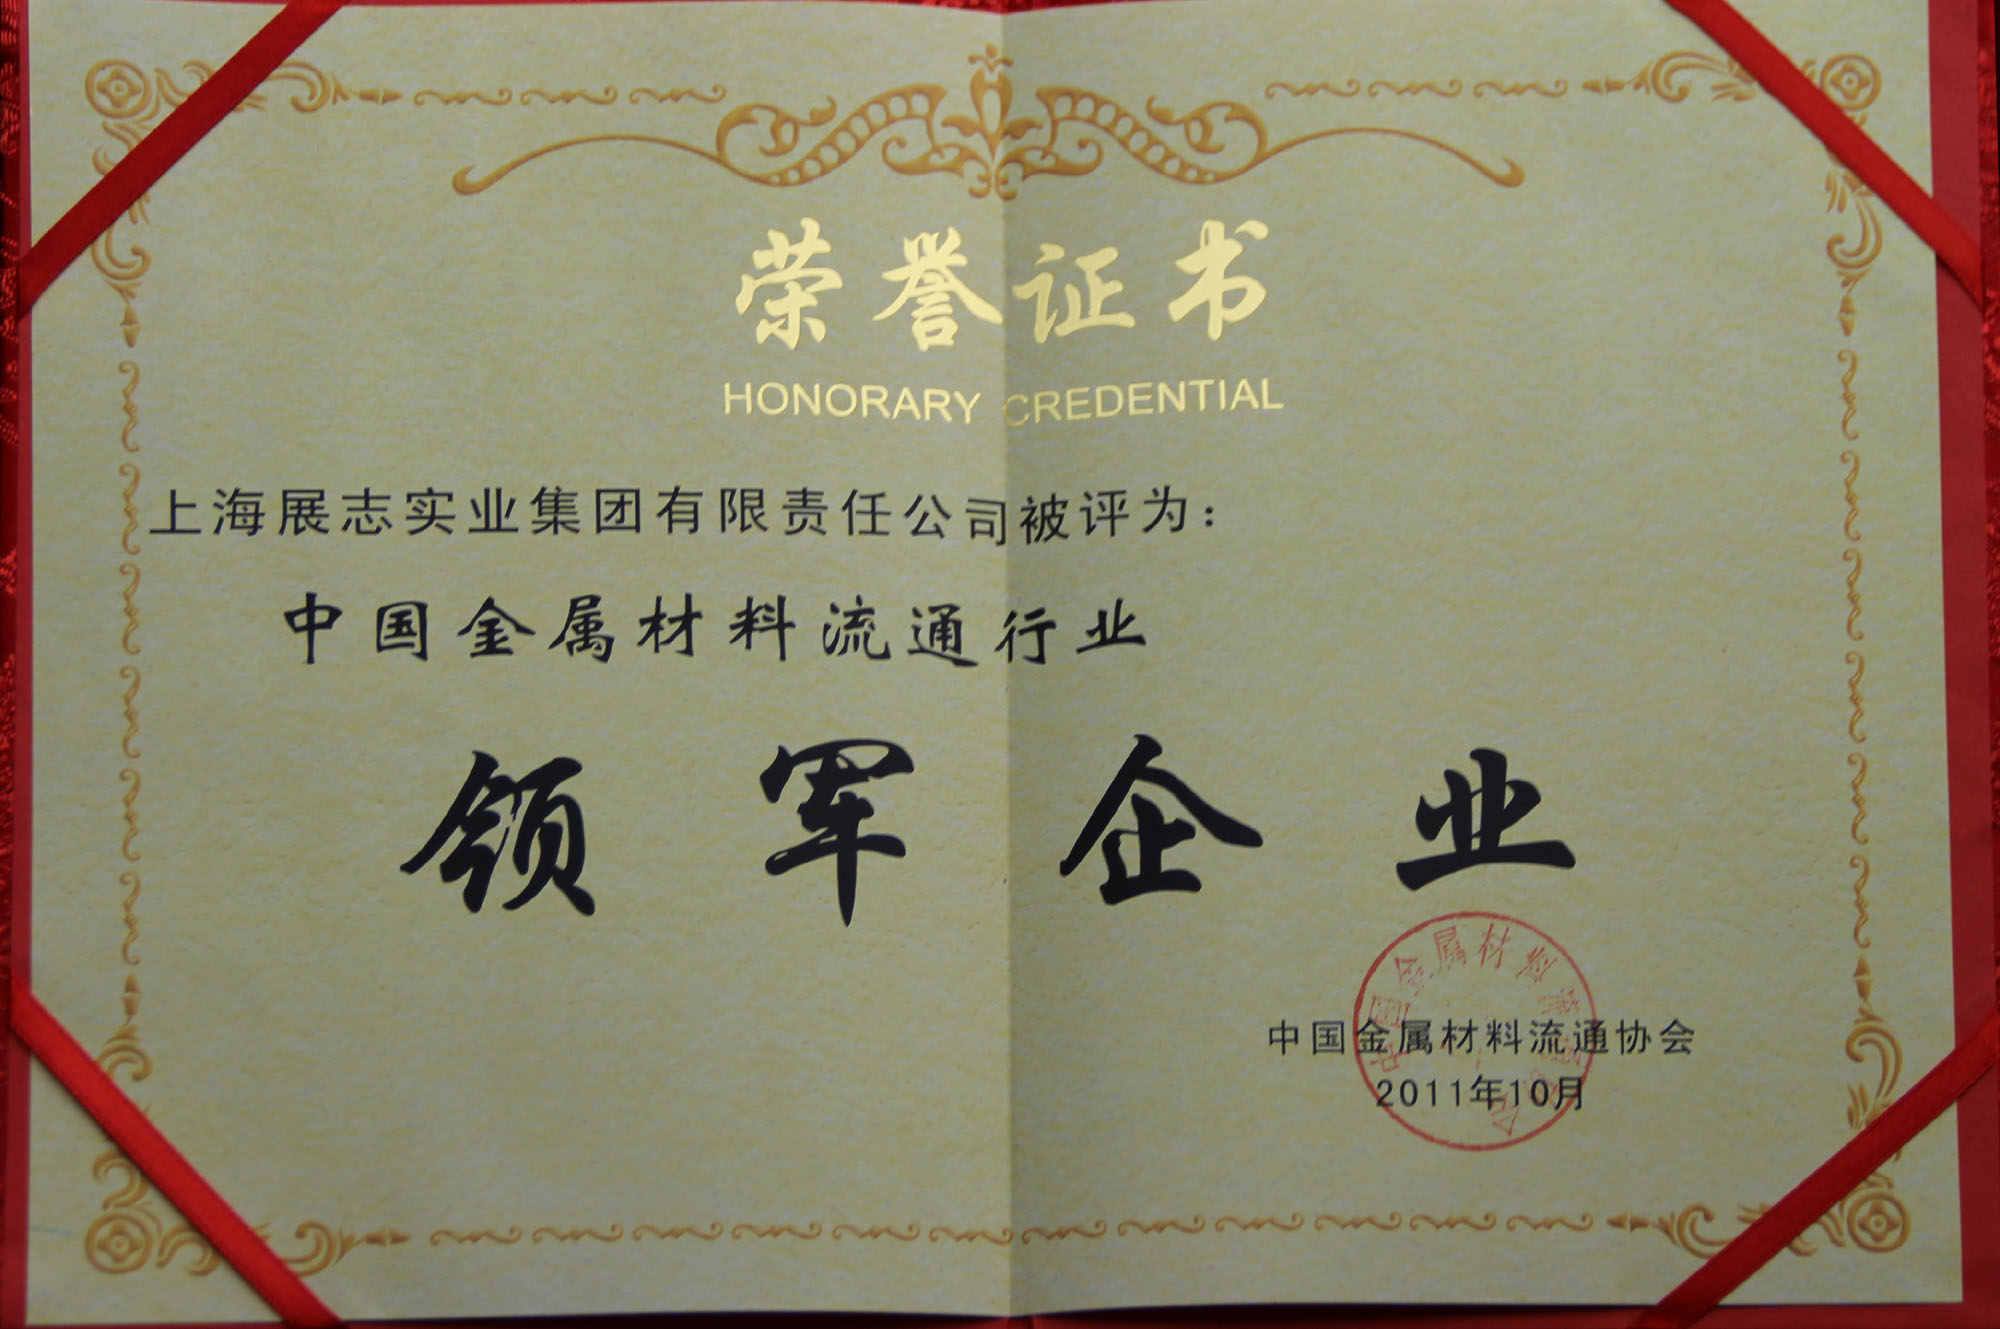 荣誉证书
HONORARY CREDENTIAL
上海展志实业集团有限责任公司被评为：
中国金属材料流通行业
领军企业
中国金属材料流通协会
中国金属材料流通协会
2011年10月